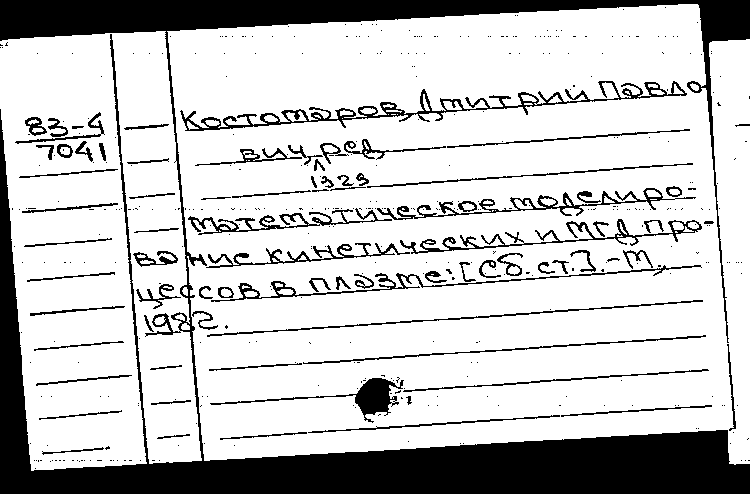 83-4
7041
Костомаров, Дмитрий Павло-
вич, ред.
1929
Математическое моделиро-
вание кинетических и МГД про-
цессов в плазме: [Сб. ст.]. - М.,
1982.